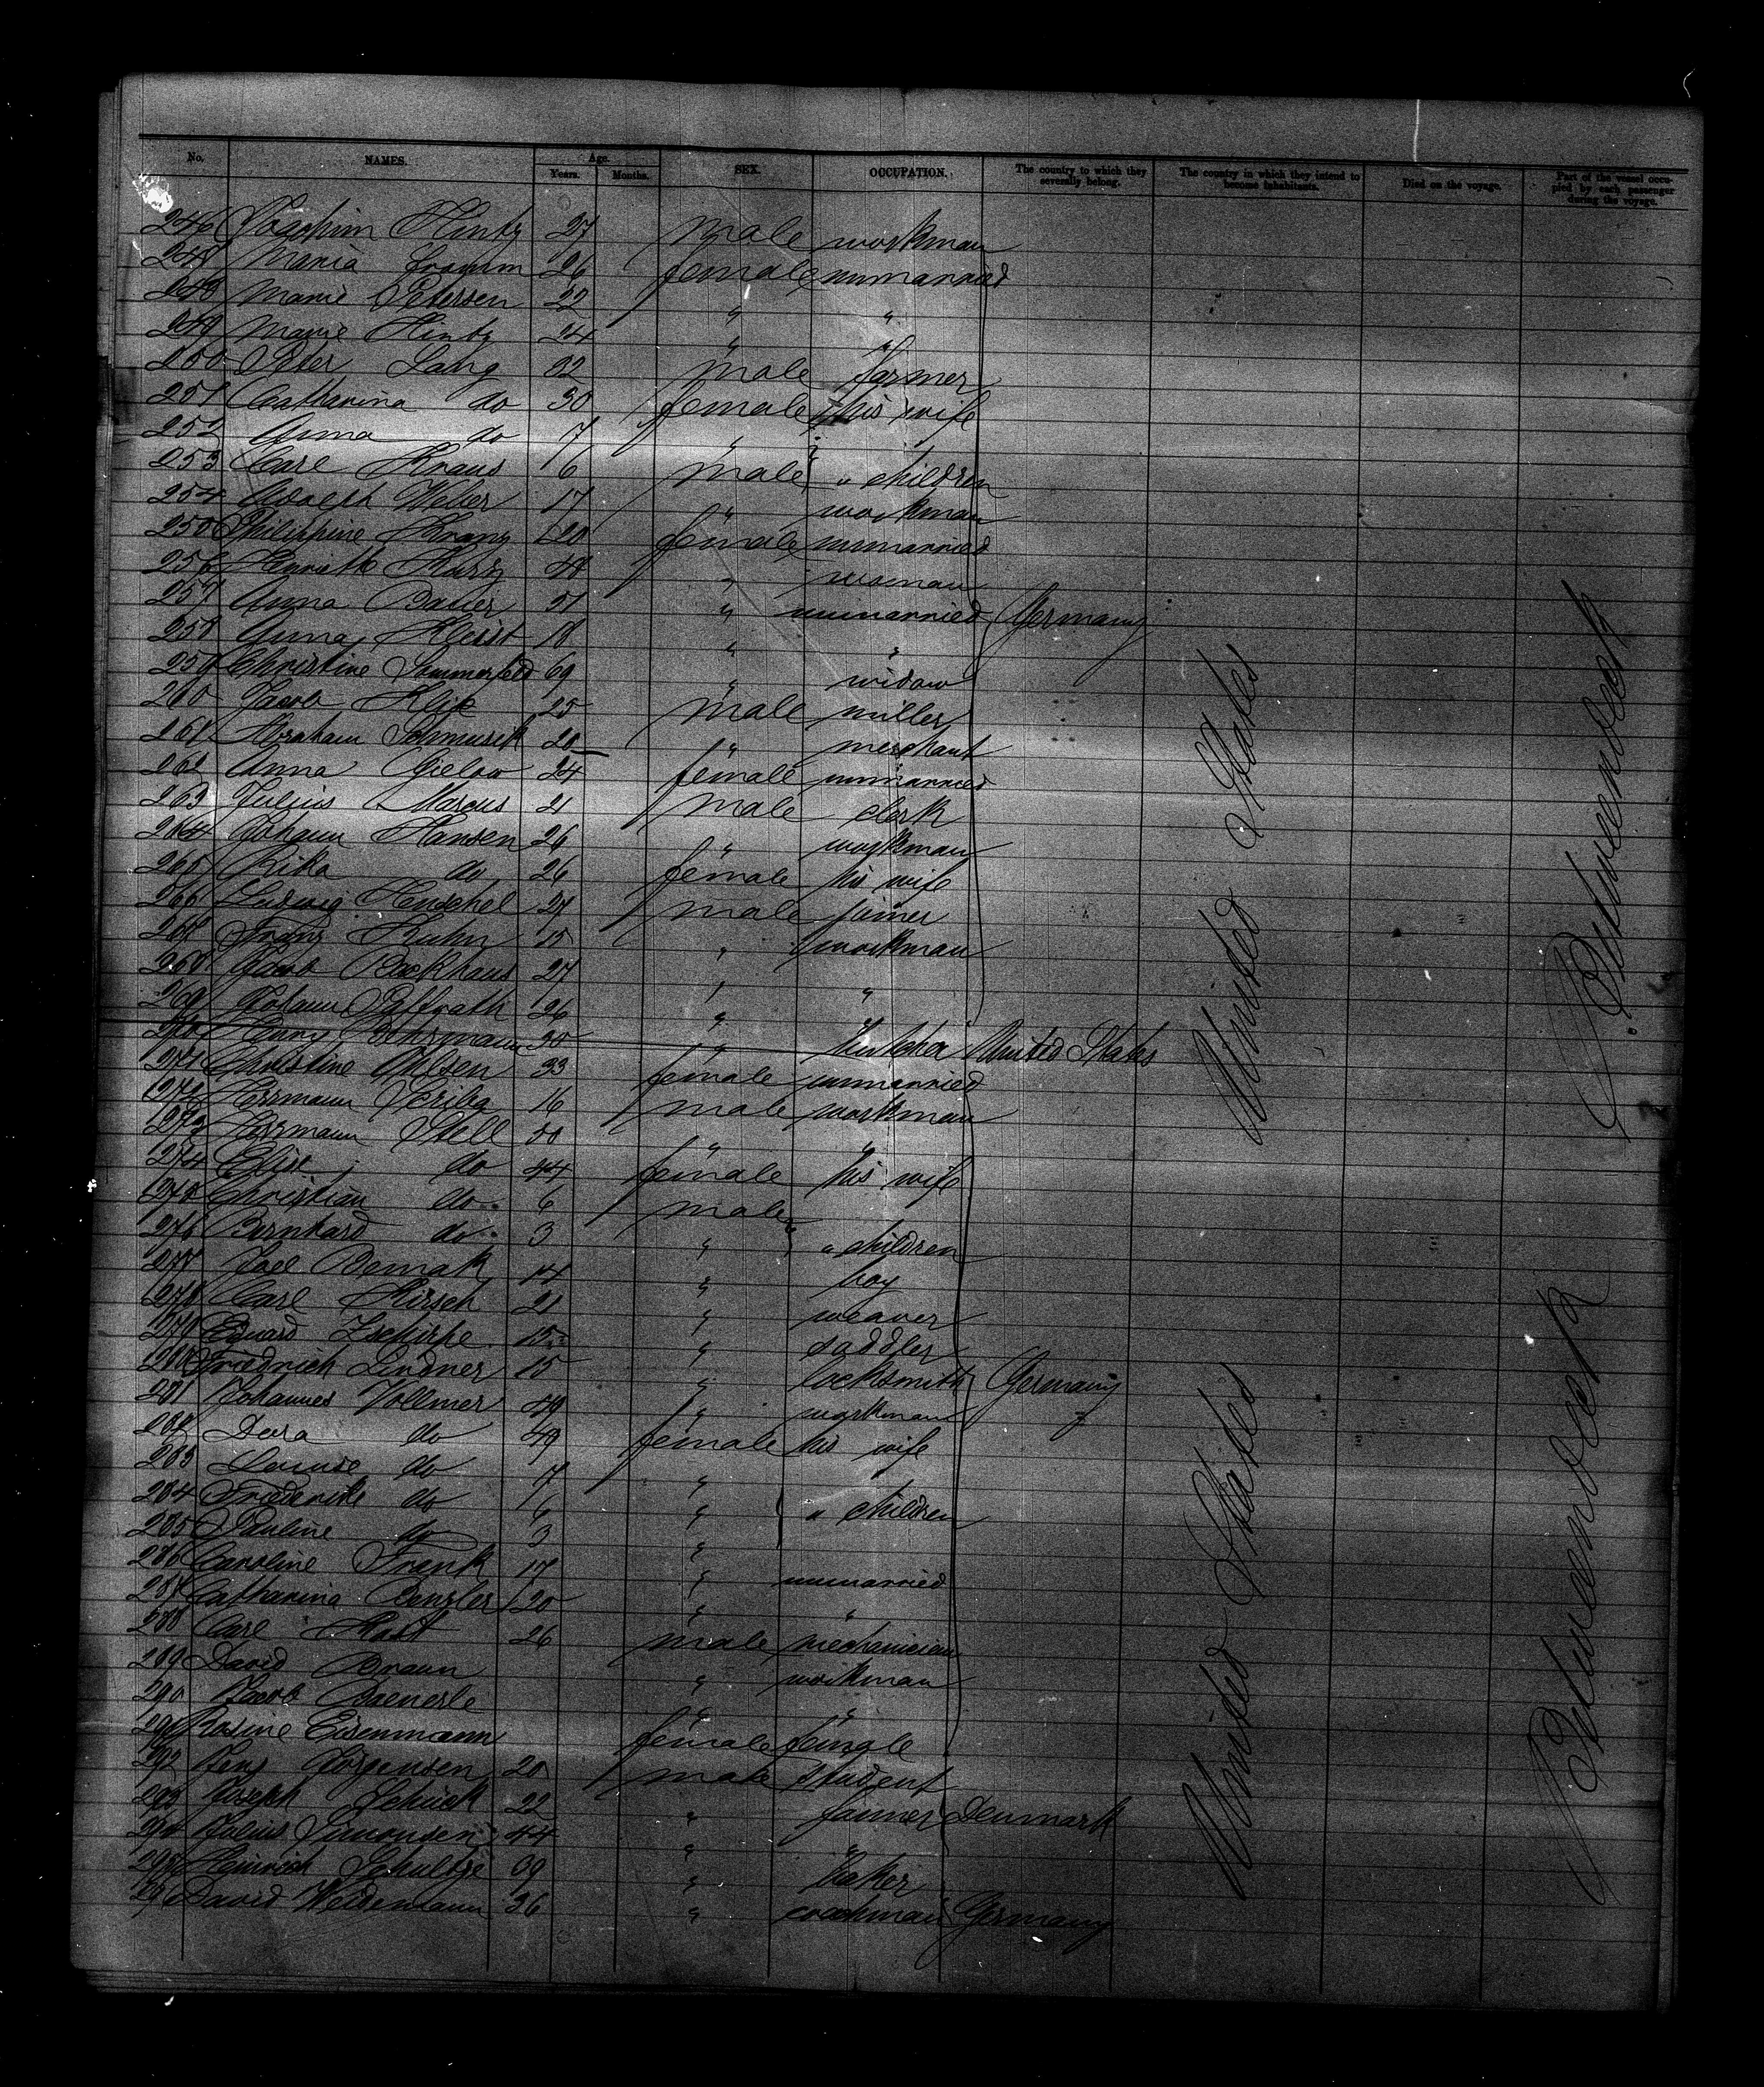 No. NAMES. Age. Years. Months. SEX. OCCUPATION. The country to which they severally belong. The country in which they intend to become inhabitants. Died on the voyage. Part of the vessel occupied by each passenger during the voyage.
246 Joachim Hintz 27 male workman
247 Maria Fromm 26 female unmarried
248 Marie Petersen 22 " "
249 Marie Hintz 24 " "
250 Peter Lang 32 male farmer
251 Catharina do 30 female his wife
252 Anna do 7 "
253 Carl Kraus 6 male " children
254 Adolph Weber 17 " workman
255 Philippine Kranz 20 female unmarried
256 Henriette Kurz 48 " woman
257 Anna Bauer 21 " unmarried Germany
258 Anna Kleist 18 " "
259 Christine Sommerfeld 69 " widow
260 Jacob 25 male miller
261 Abraham 20 " merchant
262 Anna Gielow 24 female unmarried
263 Julius Marcus 21 male clerk
264 Johann Hansen 26 " workman
265 Rika do 26 female his wife
266 Ludwig Henschel 27 male joiner
267 Franz Kuhn 15 " workman
268 Jacob Backhaus 27 " "
269 Johann 26 " "
270 Henry " butcher United States
271 Christine Ohlsen 33 female unmarried
272 Herrmann 16 male workman
273 Herrmann Stell 50 " "
274 Elise do 44 female his wife
275 Christian do 6 male
276 Bernhard do 3 " " children
277 Joel 14 " boy
278 Carl Hirsch 21 " weaver
279 Eduard 15 " saddler
280 Friedrich Lindner 15 " locksmith Germany
281 Johannes Vollmer 49 " workman
282 Dora do 49 female his wife
283 Louise do 7 "
284 Friederike do 6 " " children
285 Pauline do 3 "
286 Caroline Frank 17 " unmarried
287 Catharina 20 " "
288 Carl Hast 26 male mechanician
289 David Braun " workman
290 Jacob Baeuerle " "
291 Rosine Eisenmann female single
292 Jens Jörgensen 20 male student
293 Joseph Schück 22 " farmer Denmark
294 Julius Simonsen 44 " "
295 Heinrich Schultze 39 " baker
29 David Weidemann 36 " coachman Germany
United States
United States
Betweendeck
Betweendeck